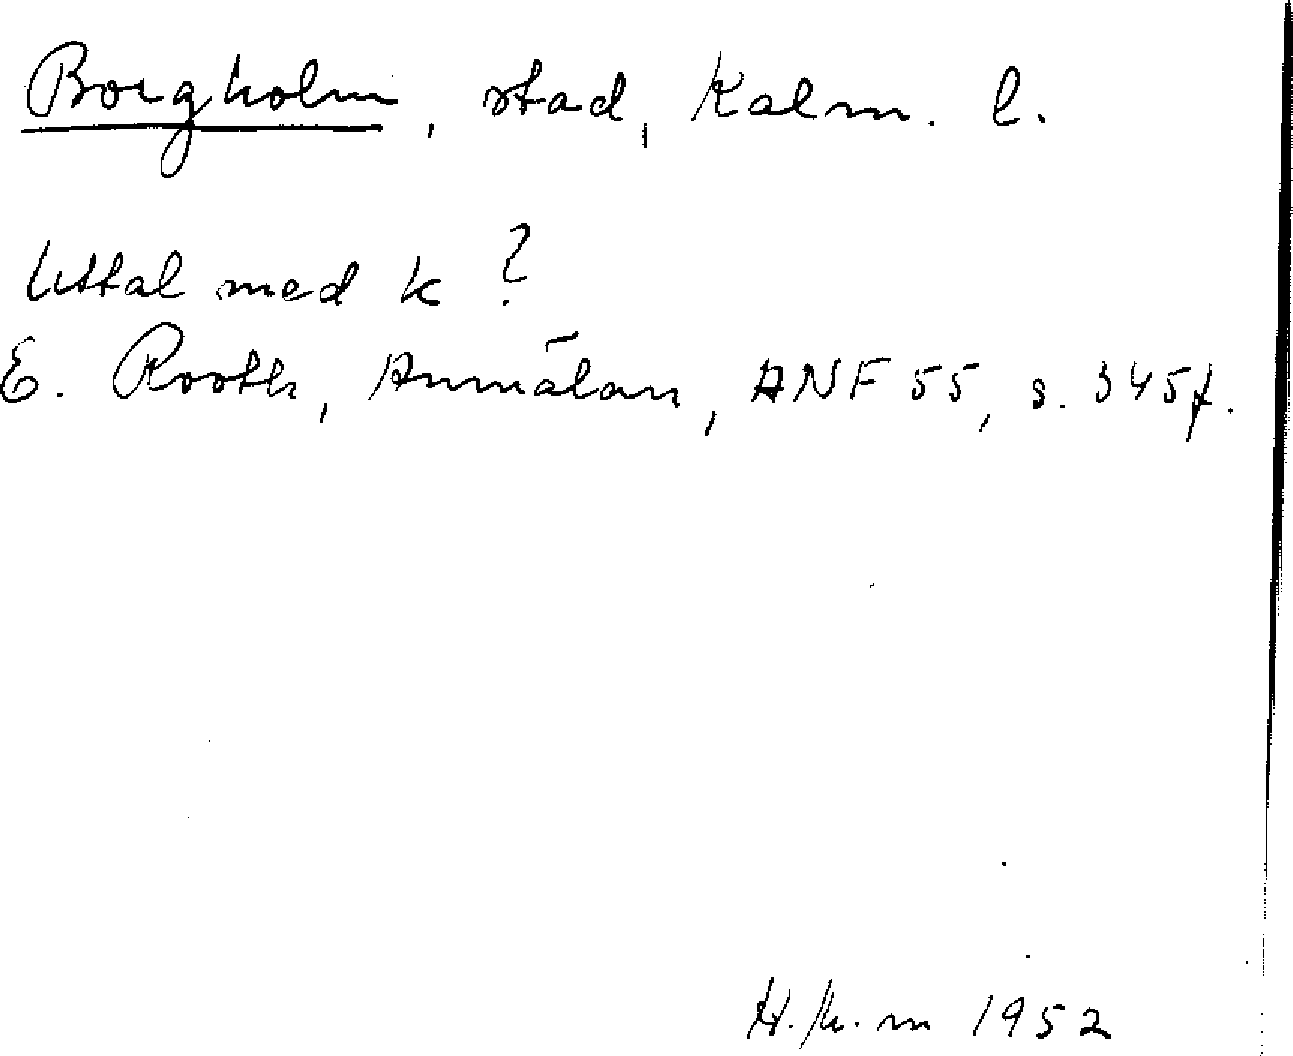 Borgholm, stad, Kalm. l.
Uttal med k?
E. Rooth, Anmälan, ANF 55, s. 345f.
1952